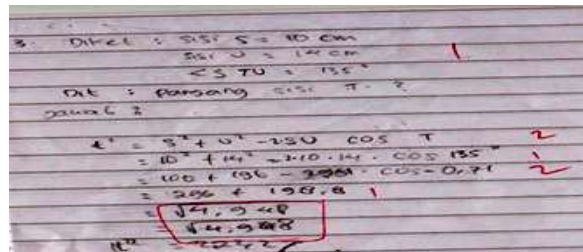 3. Diket : sisi s = 10 cm
sisi u = 14 cm 1
< STU = 135°
Dit : Panjang sisi T ?
Jawab :
t² = s² + u² - 2su cos T 2
= 10² + 14² - 2.10.14 . cos 135° 1
= 100 + 196 - 280 . cos - 0,71 2
= 296 + 198,8 1
= √4,948
= √4,948